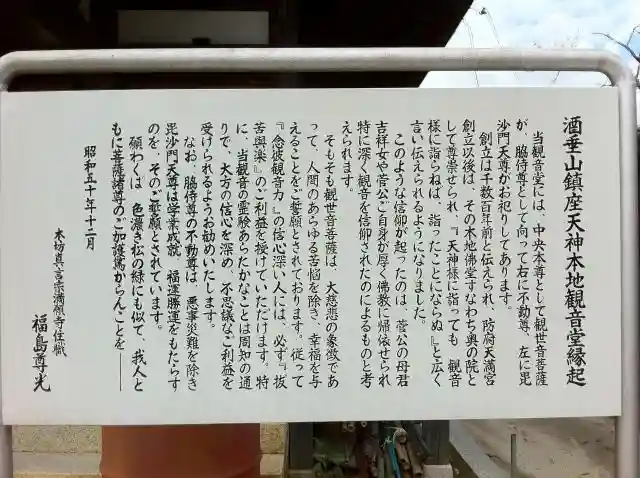 酒垂山鎮座天神本地観音堂縁起
当観音堂には、中央本尊として観世音菩薩
が、脇侍尊として向って右に不動尊、左に毘
沙門天尊がお祀りしてあります。
創立は千数百年前と伝えられ、防府天満宮
創立以後は、その本地佛堂すなわち奥の院と
して尊崇せられ、『天神様に詣っても、観音
様に詣らねば、詣ったことにならぬ』と広く
言い伝えられるようになりました。
このような信仰が起ったのは、菅公の母君
吉祥女や菅公ご自身が厚く佛教に帰依せられ
特に深く観音を信仰されたのによるものと考
えられます。
そもそも観世音菩薩は、大慈悲の象徴であ
って、人間のあらゆる苦悩を除き、幸福を与
えることをご誓願とされております。従って
『念彼観音力』の信心深い人には、必ず『抜
苦與楽』のご利益を授けていただけます。特
に、当観音の霊験あらたかなことは周知の通
りで、大方の信心を深め、不思議なご利益を
受けられるようお勧めいたします。
なお、脇侍尊の不動尊は、悪事災難を除き
毘沙門天尊は学業成就、福運勝運をもたらす
ものを、そのご誓願とされています。
願わくは、色濃き松の緑にも似て、我人と
もに菩薩諸尊のご加護篤からんことを――
昭和五十年十二月
本坊真言宗満願寺住職
福島尊光